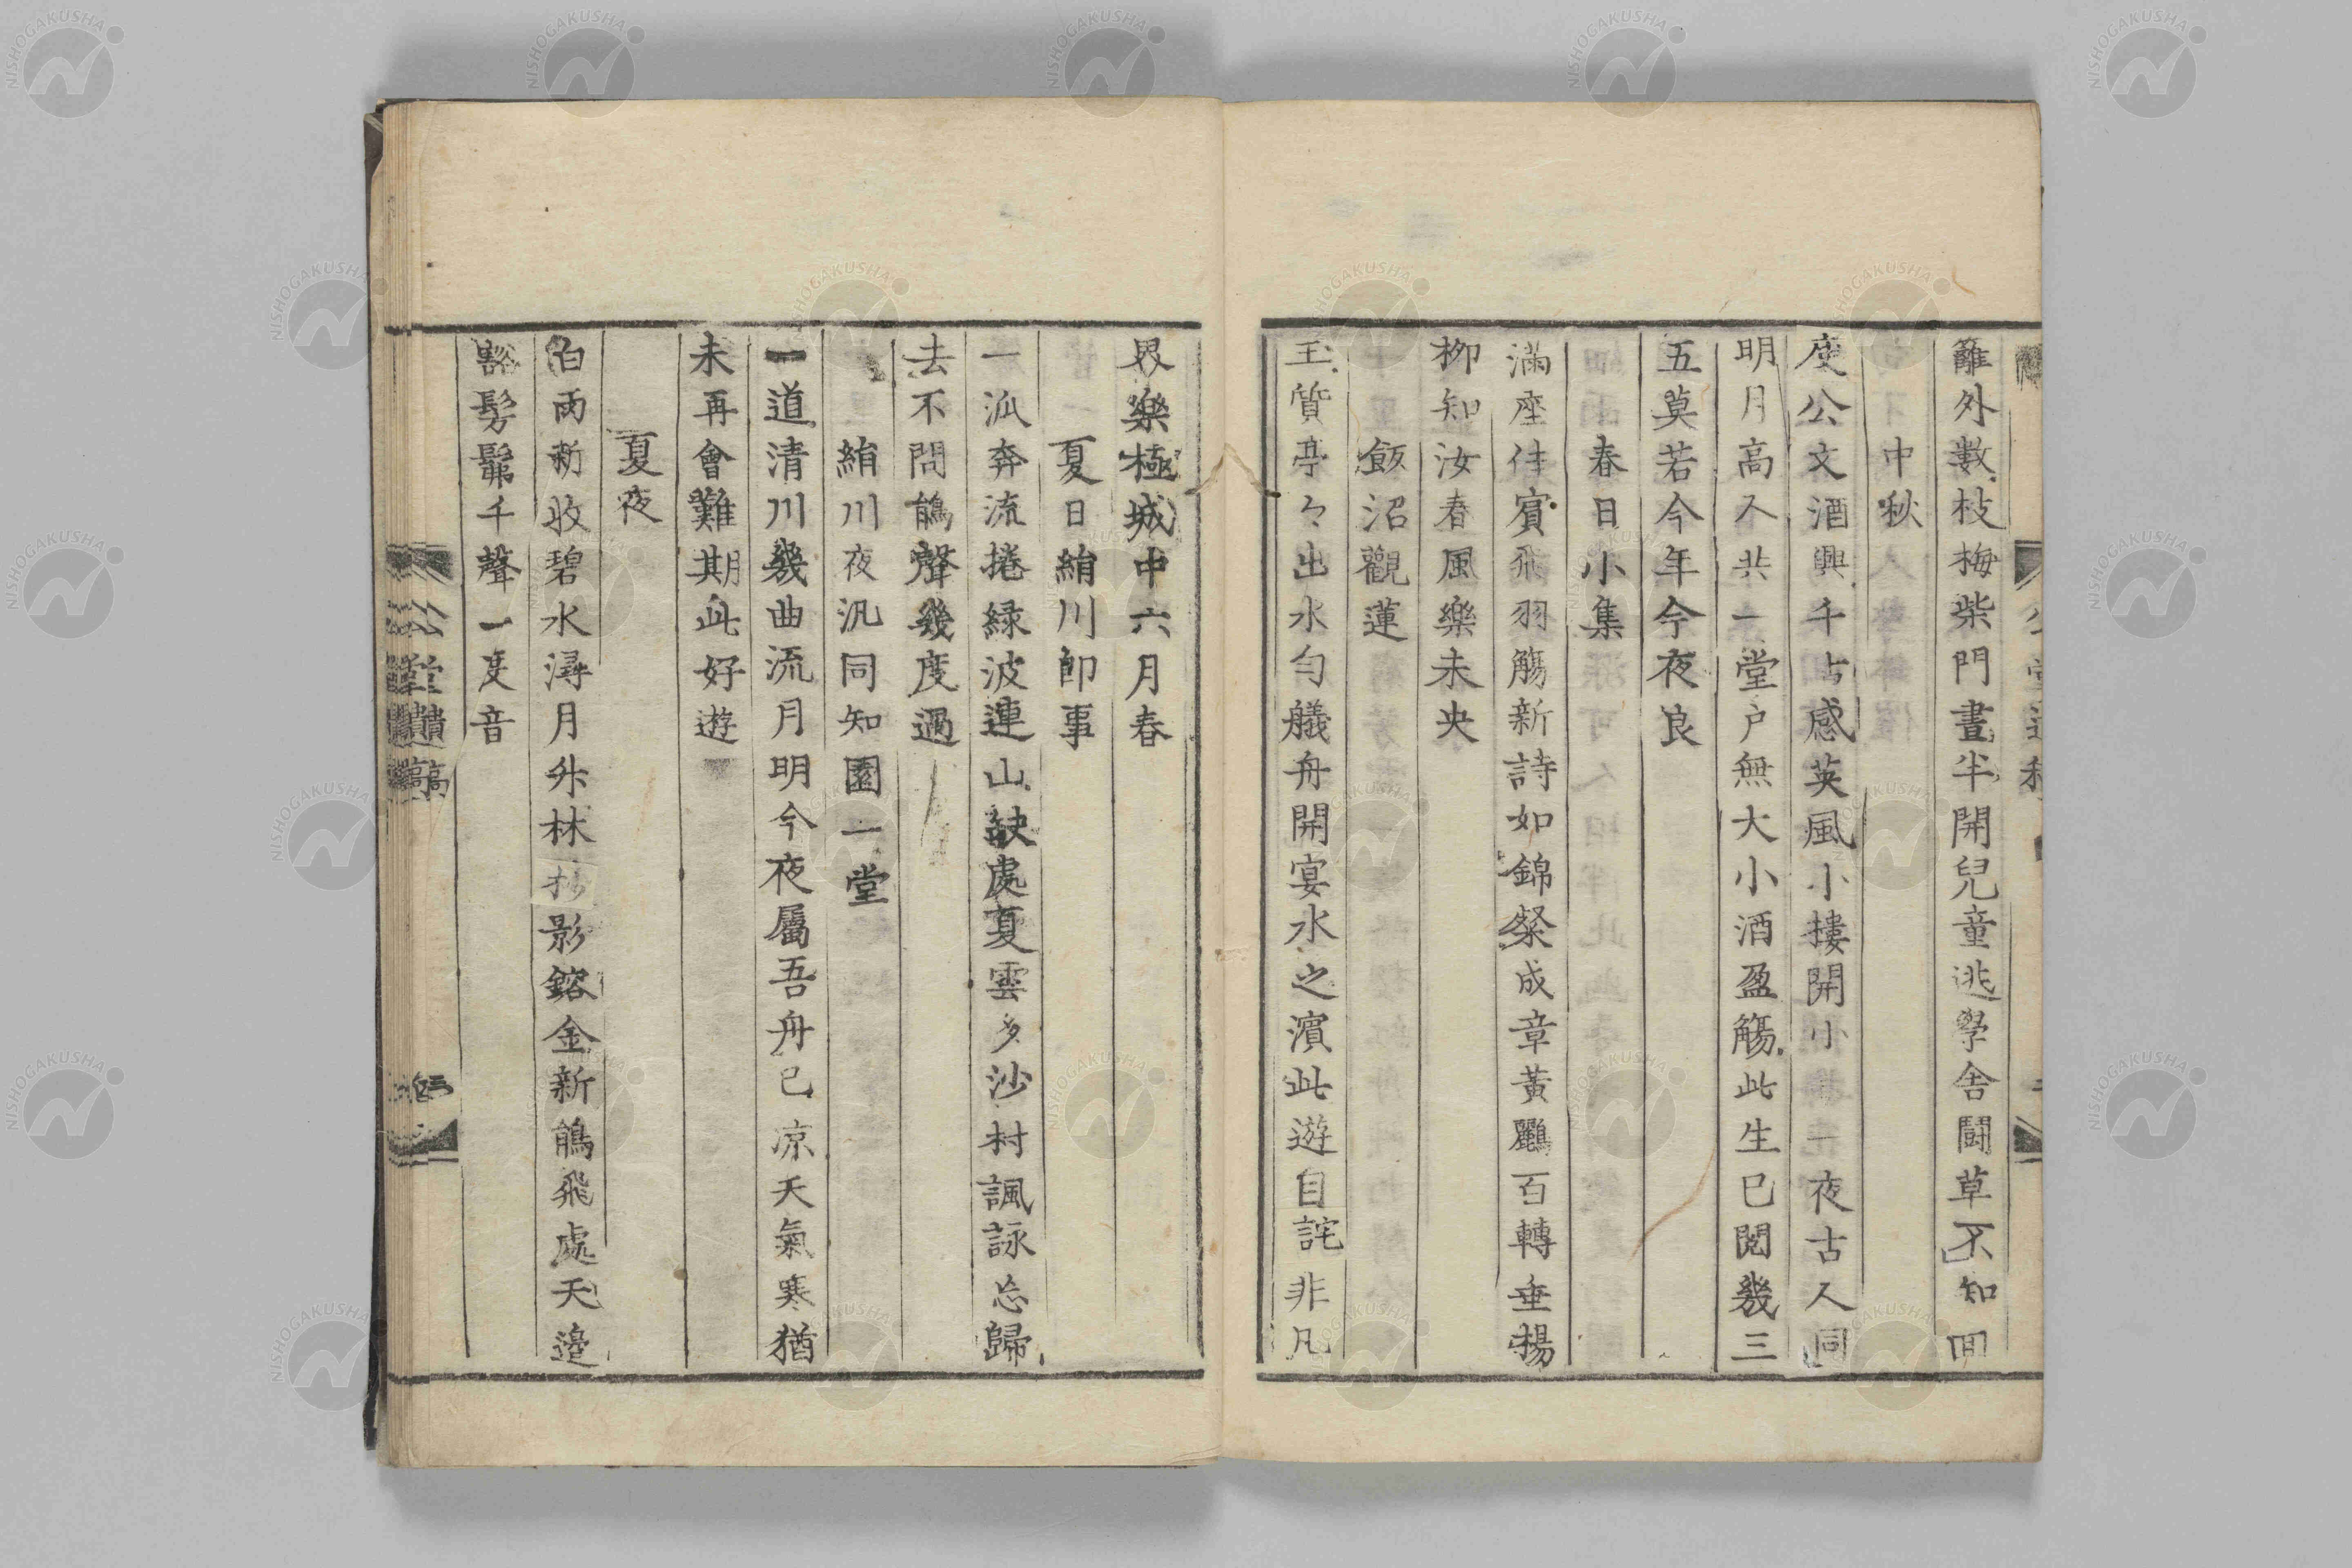 籬外數枝梅柴門晝半開兒童逃學舍鬪草不知回
中秋
庾公文酒興千古感英風小摟開小一夜古人同
明月高人共一堂戶無大小酒盈觴此生已閱幾三
五莫若今年今夜良
春日小集
滿座佳賓飛羽觴新詩如錦粲成章黃鸝百轉垂楊
柳知汝春風樂未央
飯沼觀蓮
玉質亭々出水勻艤舟開宴水之濱此遊自詫非凡
界樂極城中六月春
夏日綃川即事
一派奔流捲緑波連山缺處夏雲多沙村諷詠忘歸
去不問鵑聲幾度過
綃川夜汎同知園一堂
一道清川幾曲流月明今夜屬吾舟已涼天氣寒猶
未再會難期此好遊
夏夜
白雨新收碧水潯月升林杪影鎔金新鵑飛處天邊
豁髣髴千聲一度音
公堂遺稿
NISHOGAKUSHA